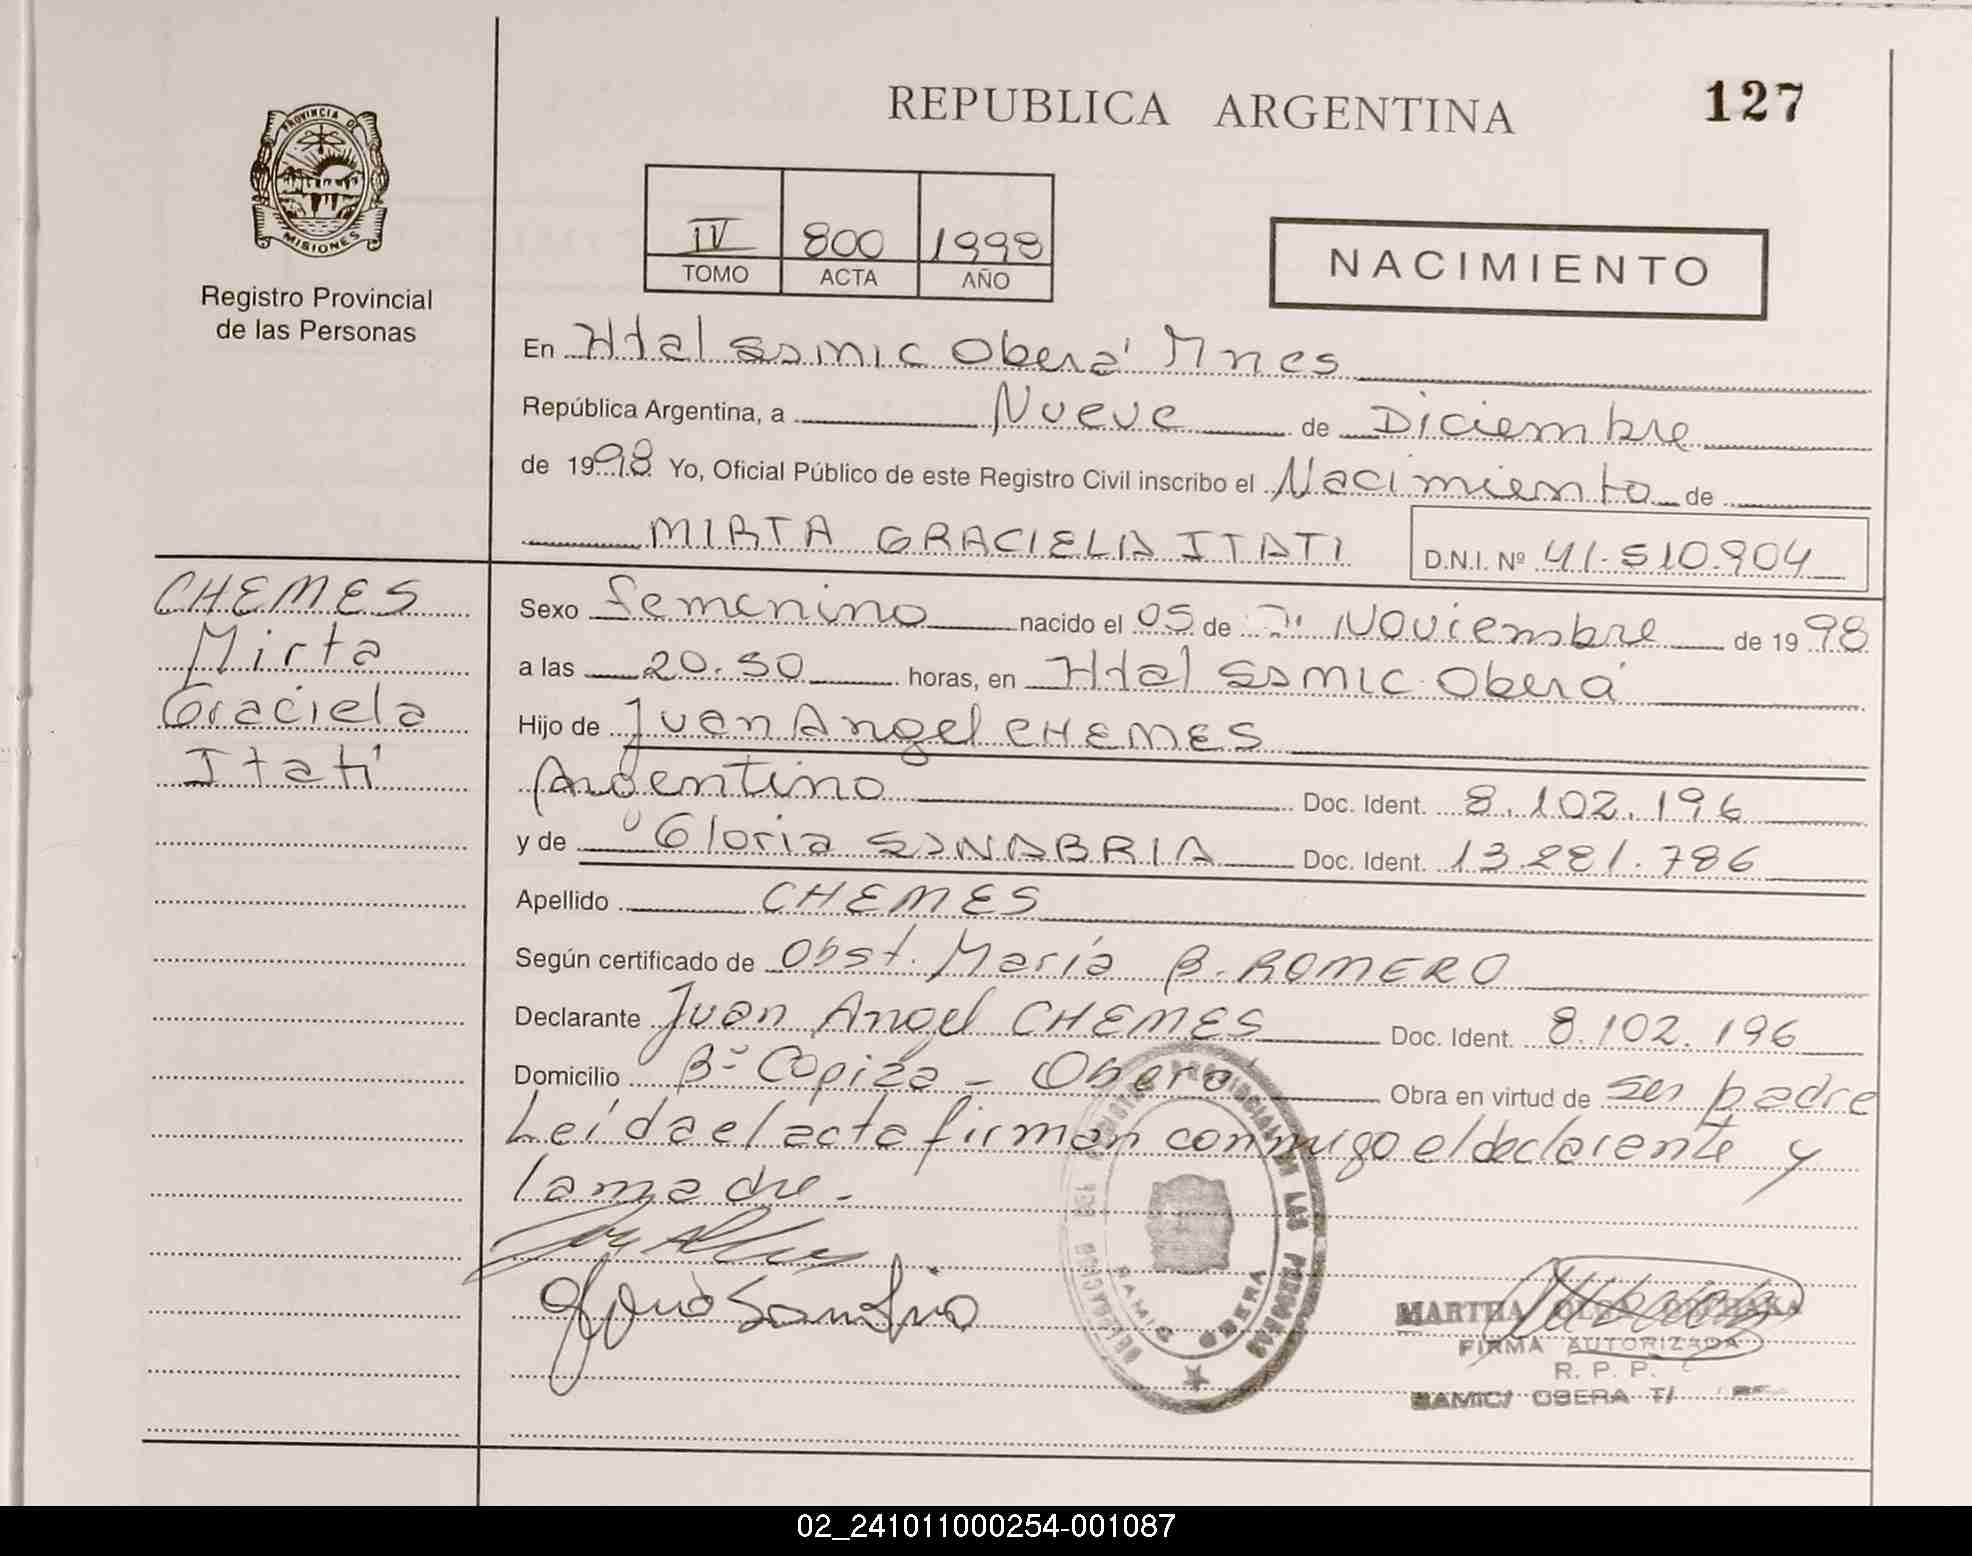 REPUBLICA ARGENTINA
127
PROVINCIA DE
MISIONES
Registro Provincial
de las Personas
IV 800 1998
TOMO ACTA AÑO
NACIMIENTO
En Htal SAMIC Oberá Mnes
República Argentina, a Nueve de Diciembre
de 1998 Yo, Oficial Público de este Registro Civil inscribo el Nacimiento de
MIRTA GRACIELA ITATI D.N.I. Nº 41.510.904
CHEMES
Mirta
Graciela
Itatí
Sexo femenino nacido el 05 de Noviembre de 1998
a las 20.50 horas, en Htal SAMIC Oberá
Hijo de Juan Angel CHEMES
Argentino Doc. Ident. 8.102.196
y de Gloria SANABRIA Doc. Ident. 13.281.786
Apellido CHEMES
Según certificado de Obst. María B. ROMERO
Declarante Juan Angel CHEMES Doc. Ident. 8.102.196
Domicilio Bº Copiza - Oberá Obra en virtud de ser padre
Leída el acta firman conmigo el declarante y
la madre.
PROVINCIAL DE LAS PERSONAS
SAMIC OBERA
MARTHA
FIRMA AUTORIZADA
R. P. P.
SAMIC/ OBERA
02_241011000254-001087